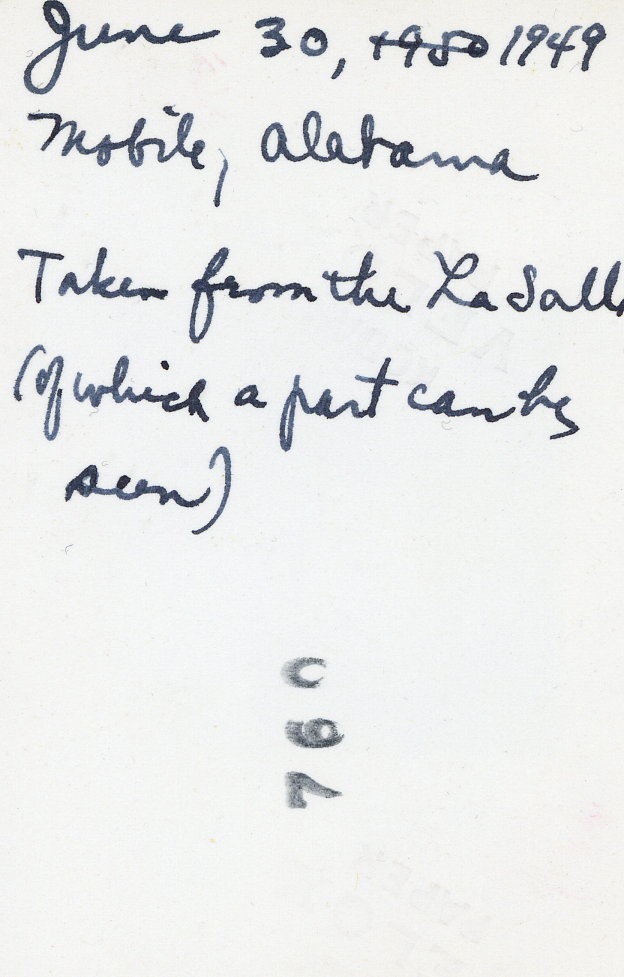 June 30, 1950 1949
Mobile, Alabama
Taken from the LaSalle
(of which a part can be
seen)
760